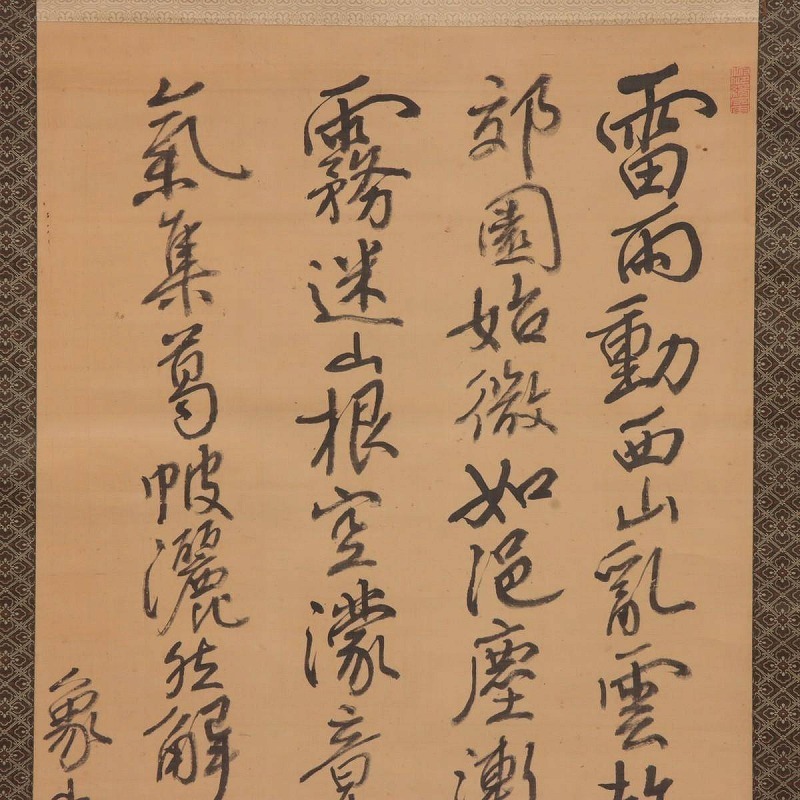 雷雨動西山亂雲
郊園始微如浥塵漸
霧迷山根空濛意
氣集葛帔灑然解
象